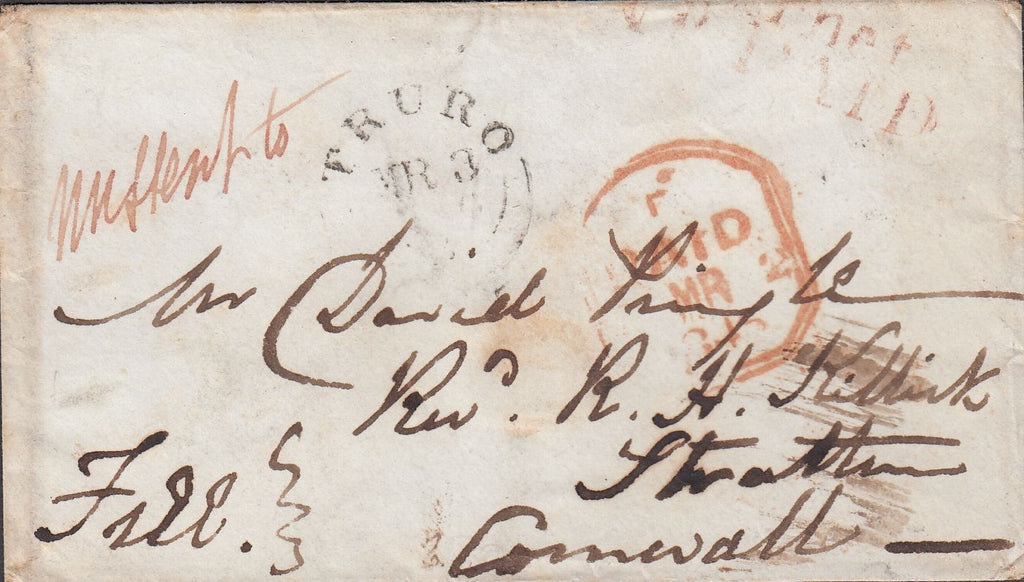 PAID
missent to
TRURO
MR 3
PAID
MR
Mr David Pringle
Revd. R. H. Killick
Stratton
Free.
Cornwall